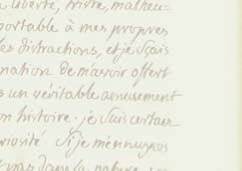 liberté, triste, malheu-
portable à mes propres
les distractions, et je sais
nation de m'avoir offert
s un véritable amusement
on histoire. je suis certain
riosité Si je m'ennuyois
pas dans la nature